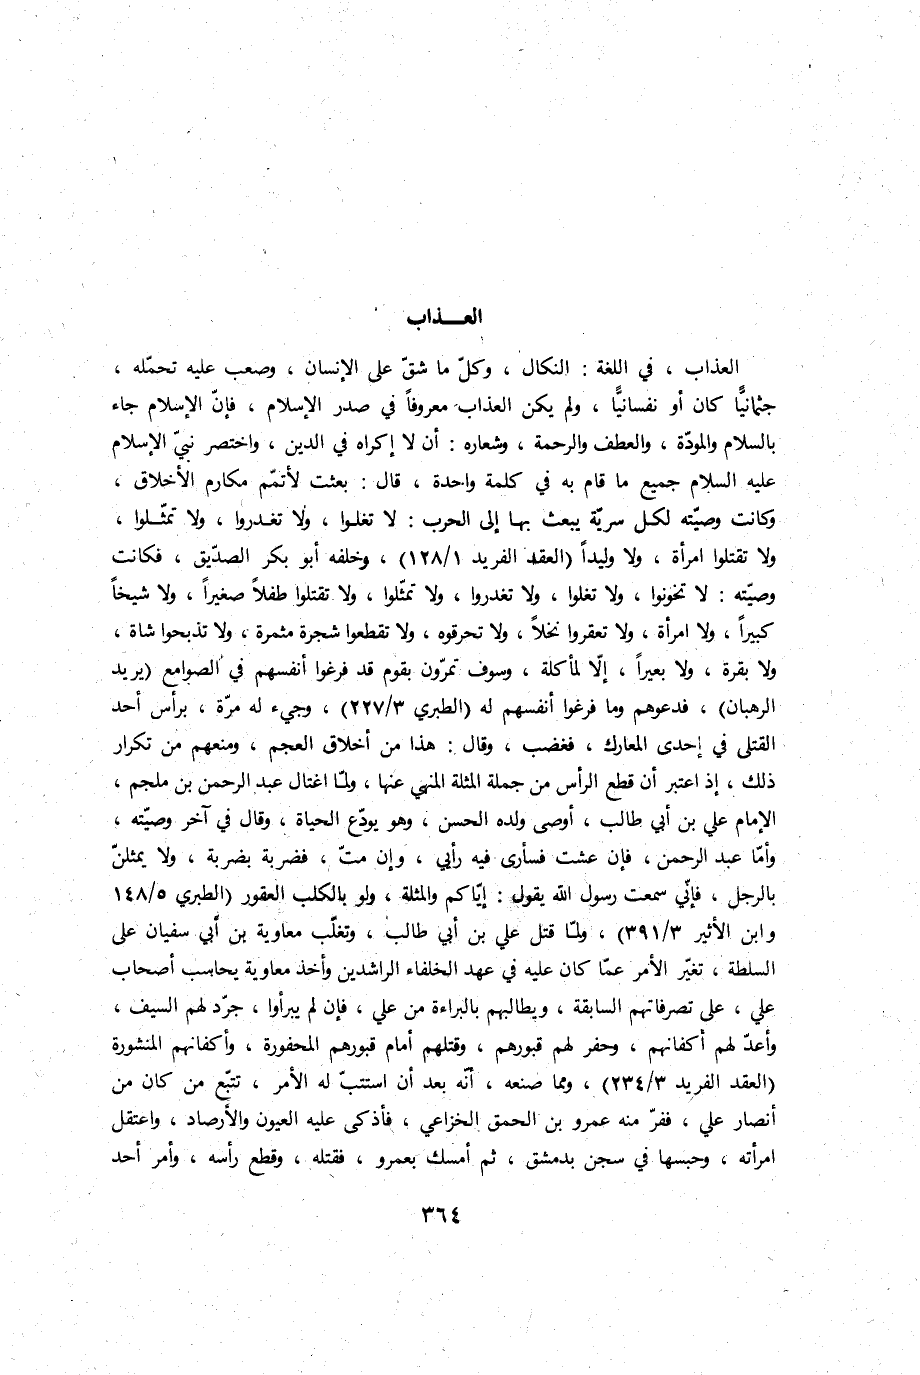 العـــذاب
العذاب ، في اللغة : النكال ، وكلّ ما شقّ على الإنسان ، وصعب عليه تحمّله ،
جثمانيًّا كان أو نفسانيًّا ، ولم يكن العذاب معروفاً في صدر الإسلام ، فإنّ الإسلام جاء
بالسلام والمودّة ، والعطف والرحمة ، وشعاره : أن لا إكراه في الدين ، واختصر نبيّ الإسلام
عليه السلام جميع ما قام به في كلمة واحدة ، قال : بعثت لأتمّم مكارم الأخلاق ،
وكانت وصيّته لكل سريّة يبعث بها إلى الحرب : لا تغلوا ، ولا تغدروا ، ولا تمثّلوا ،
ولا تقتلوا امرأة ، ولا وليداً (العقد الفريد ١٢٨/١) ، وخلفه أبو بكر الصدّيق ، فكانت
وصيّته : لا تخونوا ، ولا تغلوا ، ولا تغدروا ، ولا تمثّلوا ، ولا تقتلوا طفلاً صغيراً ، ولا شيخاً
كبيراً ، ولا امرأة ، ولا تعقروا نخلاً ، ولا تحرقوه ، ولا تقطعوا شجرة مثمرة ، ولا تذبحوا شاة ،
ولا بقرة ، ولا بعيراً ، إلّا لمأكلة ، وسوف تمرّون بقوم قد فرغوا أنفسهم في الصوامع (يريد
الرهبان) ، فدعوهم وما فرغوا أنفسهم له (الطبري ٢٢٧/٣) ، وجيء له مرّة ، برأس أحد
القتلى في إحدى المعارك ، فغضب ، وقال : هذا من أخلاق العجم ، ومنعهم من تكرار
ذلك ، إذ اعتبر أن قطع الرأس من جملة المثلة المنهي عنها ، ولمّا اغتال عبد الرحمن بن ملجم ،
الإمام علي بن أبي طالب ، أوصى ولده الحسن ، وهو يودّع الحياة ، وقال في آخر وصيّته ،
وأمّا عبد الرحمن ، فإن عشت فسأرى فيه رأيي ، وإن متّ ، فضربة بضربة ، ولا يمثلنّ
بالرجل ، فإنّي سمعت رسول الله يقول : إيّاكم والمثلة ، ولو بالكلب العقور (الطبري ١٤٨/٥
وابن الأثير ٣٩١/٣) ، ولمّا قتل علي بن أبي طالب ، وتغلّب معاوية بن أبي سفيان على
السلطة ، تغيّر الأمر عمّا كان عليه في عهد الخلفاء الراشدين وأخذ معاوية يحاسب أصحاب
علي ، على تصرفاتهم السابقة ، ويطالبهم بالبراءة من علي ، فإن لم يبرأوا ، جرّد لهم السيف ،
وأعدّ لهم أكفانهم ، وحفر لهم قبورهم ، وقتلهم أمام قبورهم المحفورة ، وأكفانهم المنشورة
(العقد الفريد ٢٣٤/٣) ، ومما صنعه ، أنّه بعد أن استتبّ له الأمر ، تتبّع من كان من
أنصار علي ، ففرّ منه عمرو بن الحمق الخزاعي ، فأذكى عليه العيون والأرصاد ، واعتقل
امرأته ، وحبسها في سجن بدمشق ، ثم أمسك بعمرو ، فقتله ، وقطع رأسه ، وأمر أحد
٣٦٤